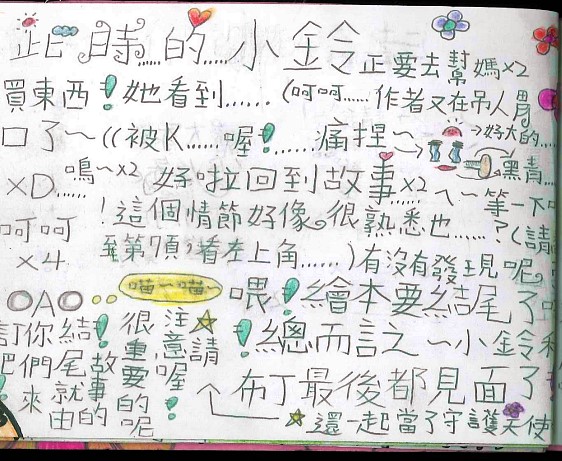 此時......的......小鈴正要去幫媽x2
買東西!她看到......(呵呵......作者又在吊人胃
口了~((被K......喔!......痛捏~
→好大的...
黑青...
XD......嗚~x2 好啦回到故事x2 ㄟ~等一下
!這個情節好像很熟悉也......?(請
呵呵x4
至第7頁,看左上角......)有沒有發現呢
OAO..喵~喵~喂!繪本要結尾了
很重要的呢!
注意喔!
☆請
!總而言之~小鈴和
訂你結!
吧們尾故
!來就事
由的
布丁最後都見面了
☆還一起當了守護天使